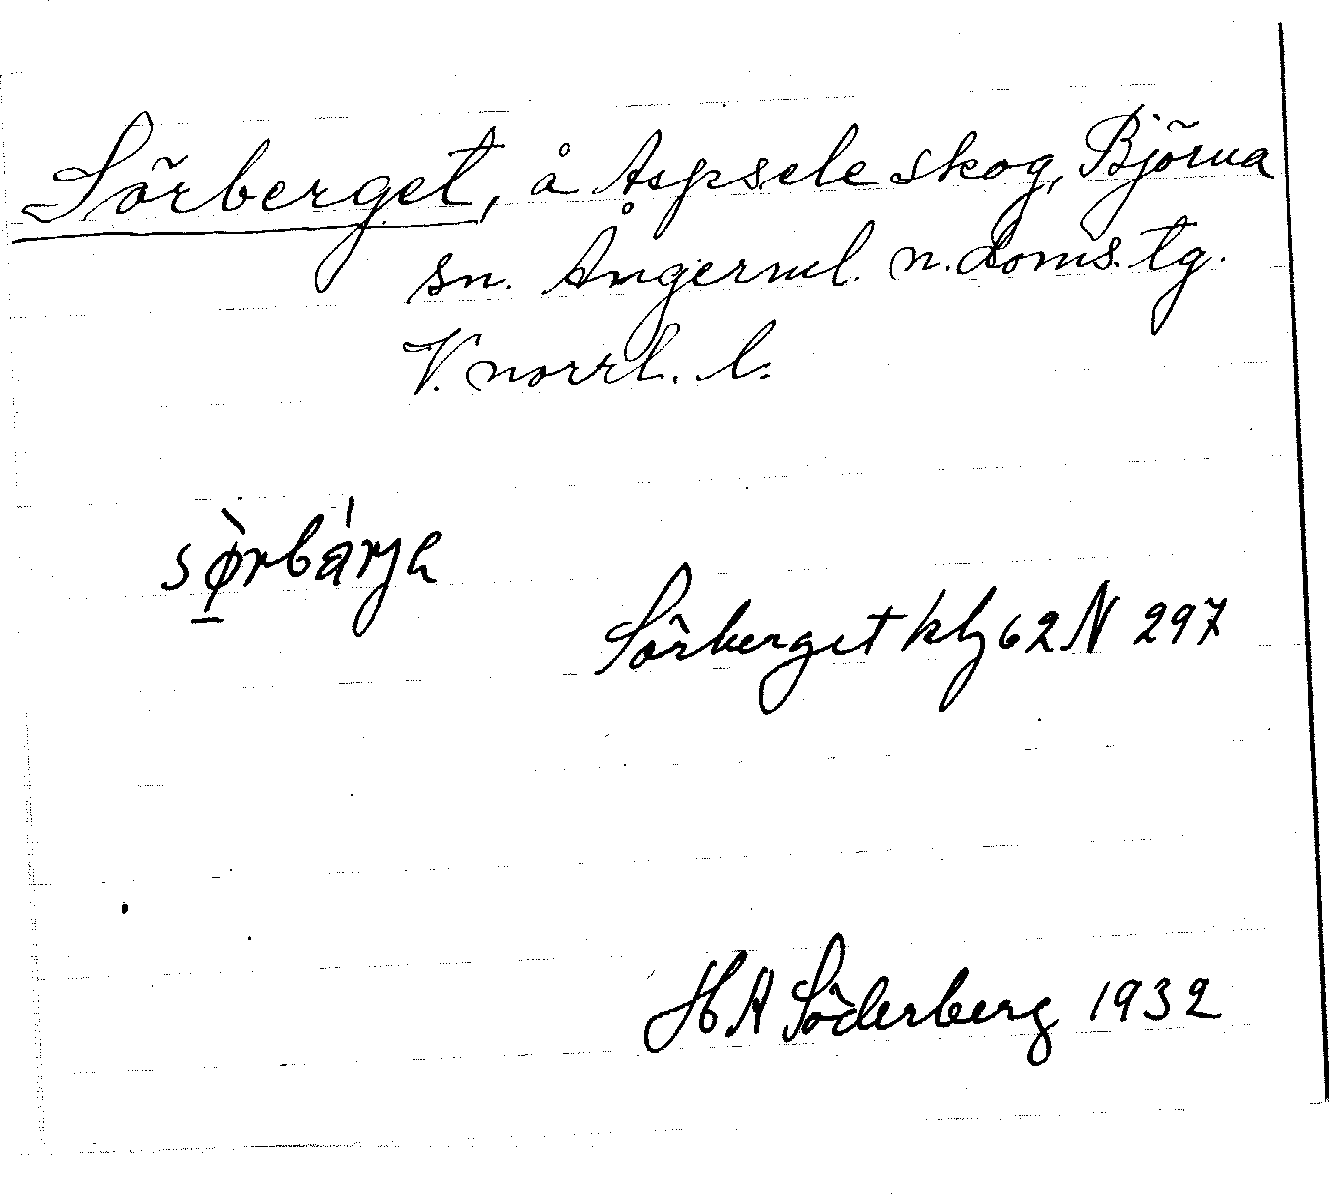 Sörberget, å Aspsele skog, Björna
sn. Ångerml. n. doms. tg.
V. norrl. l.
sø̀rbárja
Sörberget kbl 62 N 297
H A Söderberg 1932